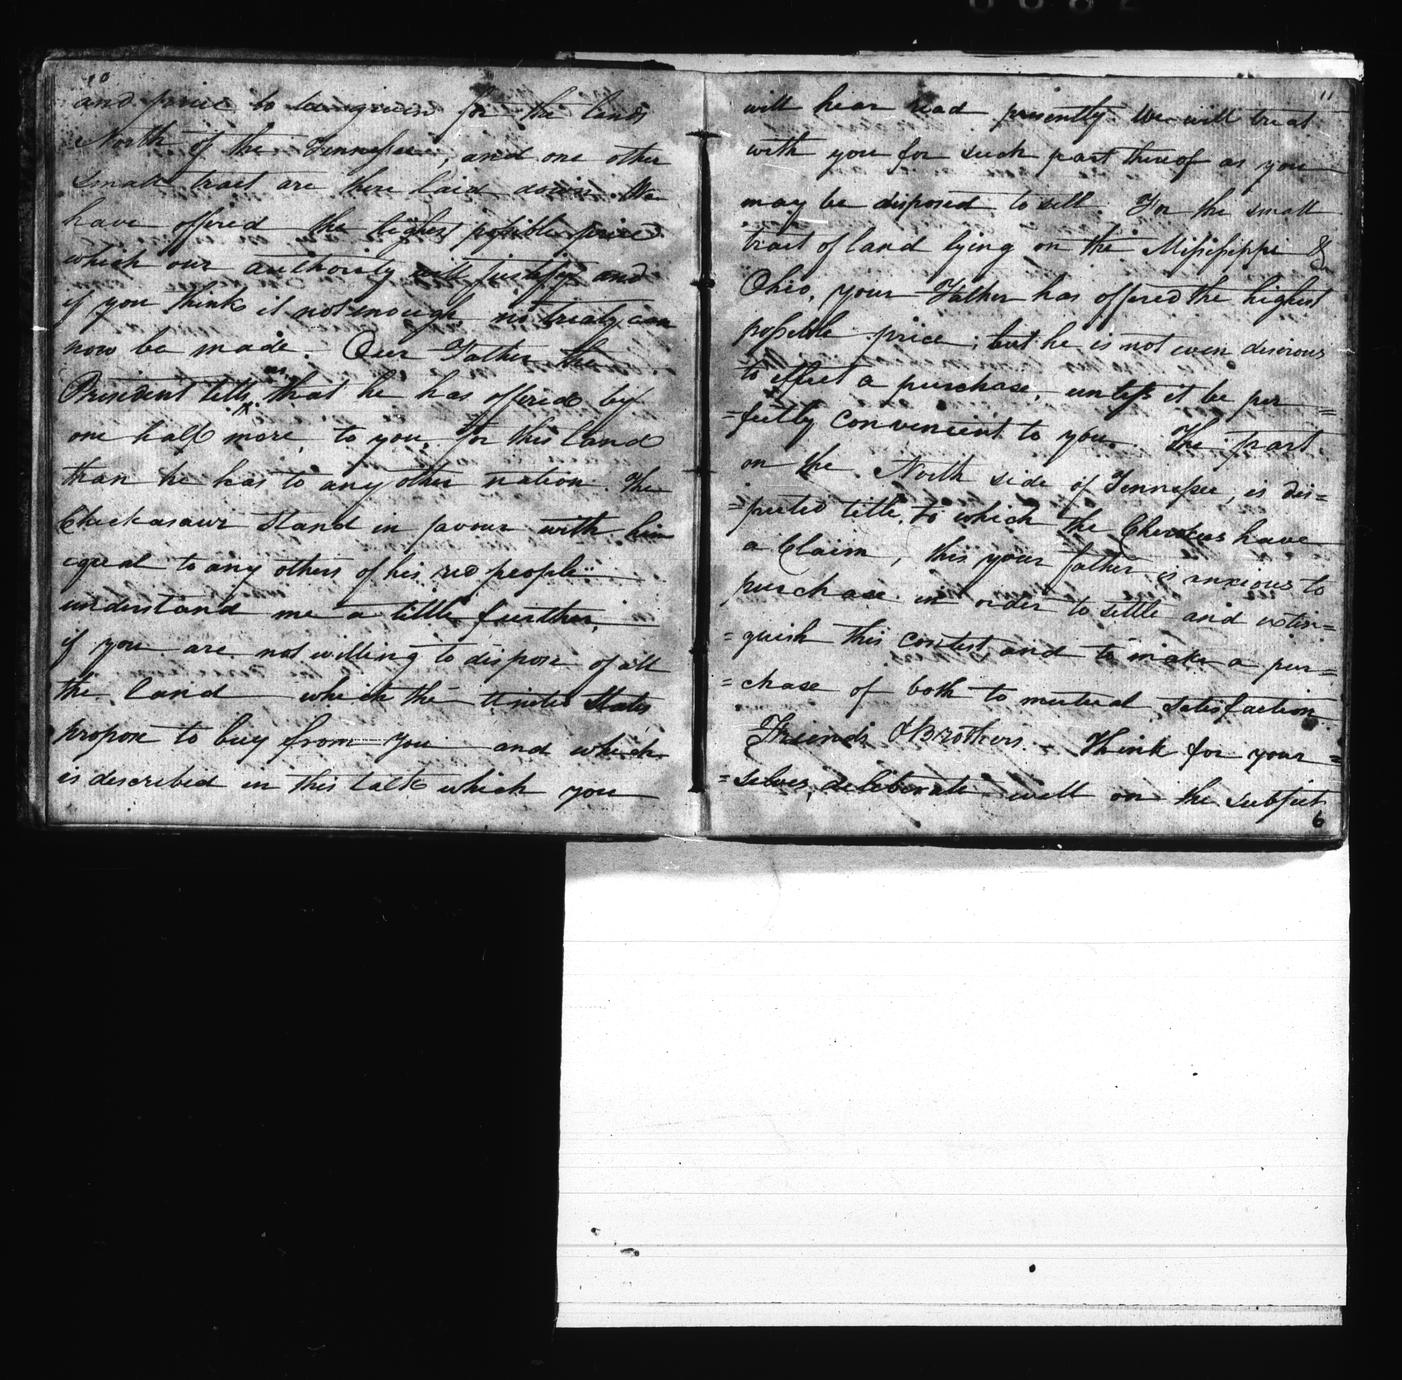 10
and price to be given for the lands
North of the Tennessee, and one other
small tract are here laid down. We
have offered the highest possible price
which our authority will justify and
if you think it not enough no treaty can
now be made. Our Father the
President tells us that he has offered by
one half more, to you, for this land
than he has to any other nation. The
Chickasaws stand in favour with him
equal to any others of his red people
understand me a little further,
if you are not willing to dispose of all
the land which the United States
propose to buy from you and which
is described in this talk which you
11
will hear read presently We will treat
with you for such part thereof as you
may be disposed to sell. For the small
tract of land lying on the Missisippi &
Ohio, your Father has offered the highest
possible price; but he is not even desirous
to effect a purchase, unless it be per=
=fectly convenient to you. The part
on the North side of Tennessee, is dis=
=puted title, to which the Cherokees have
a Claim, this your father is anxious to
purchase in order to settle and extin=
=guish this contest and to make a pur=
=chase of both to mutual satisfaction.
Friends & Brothers. Think for your=
=selves, deliberate well on the subject
6